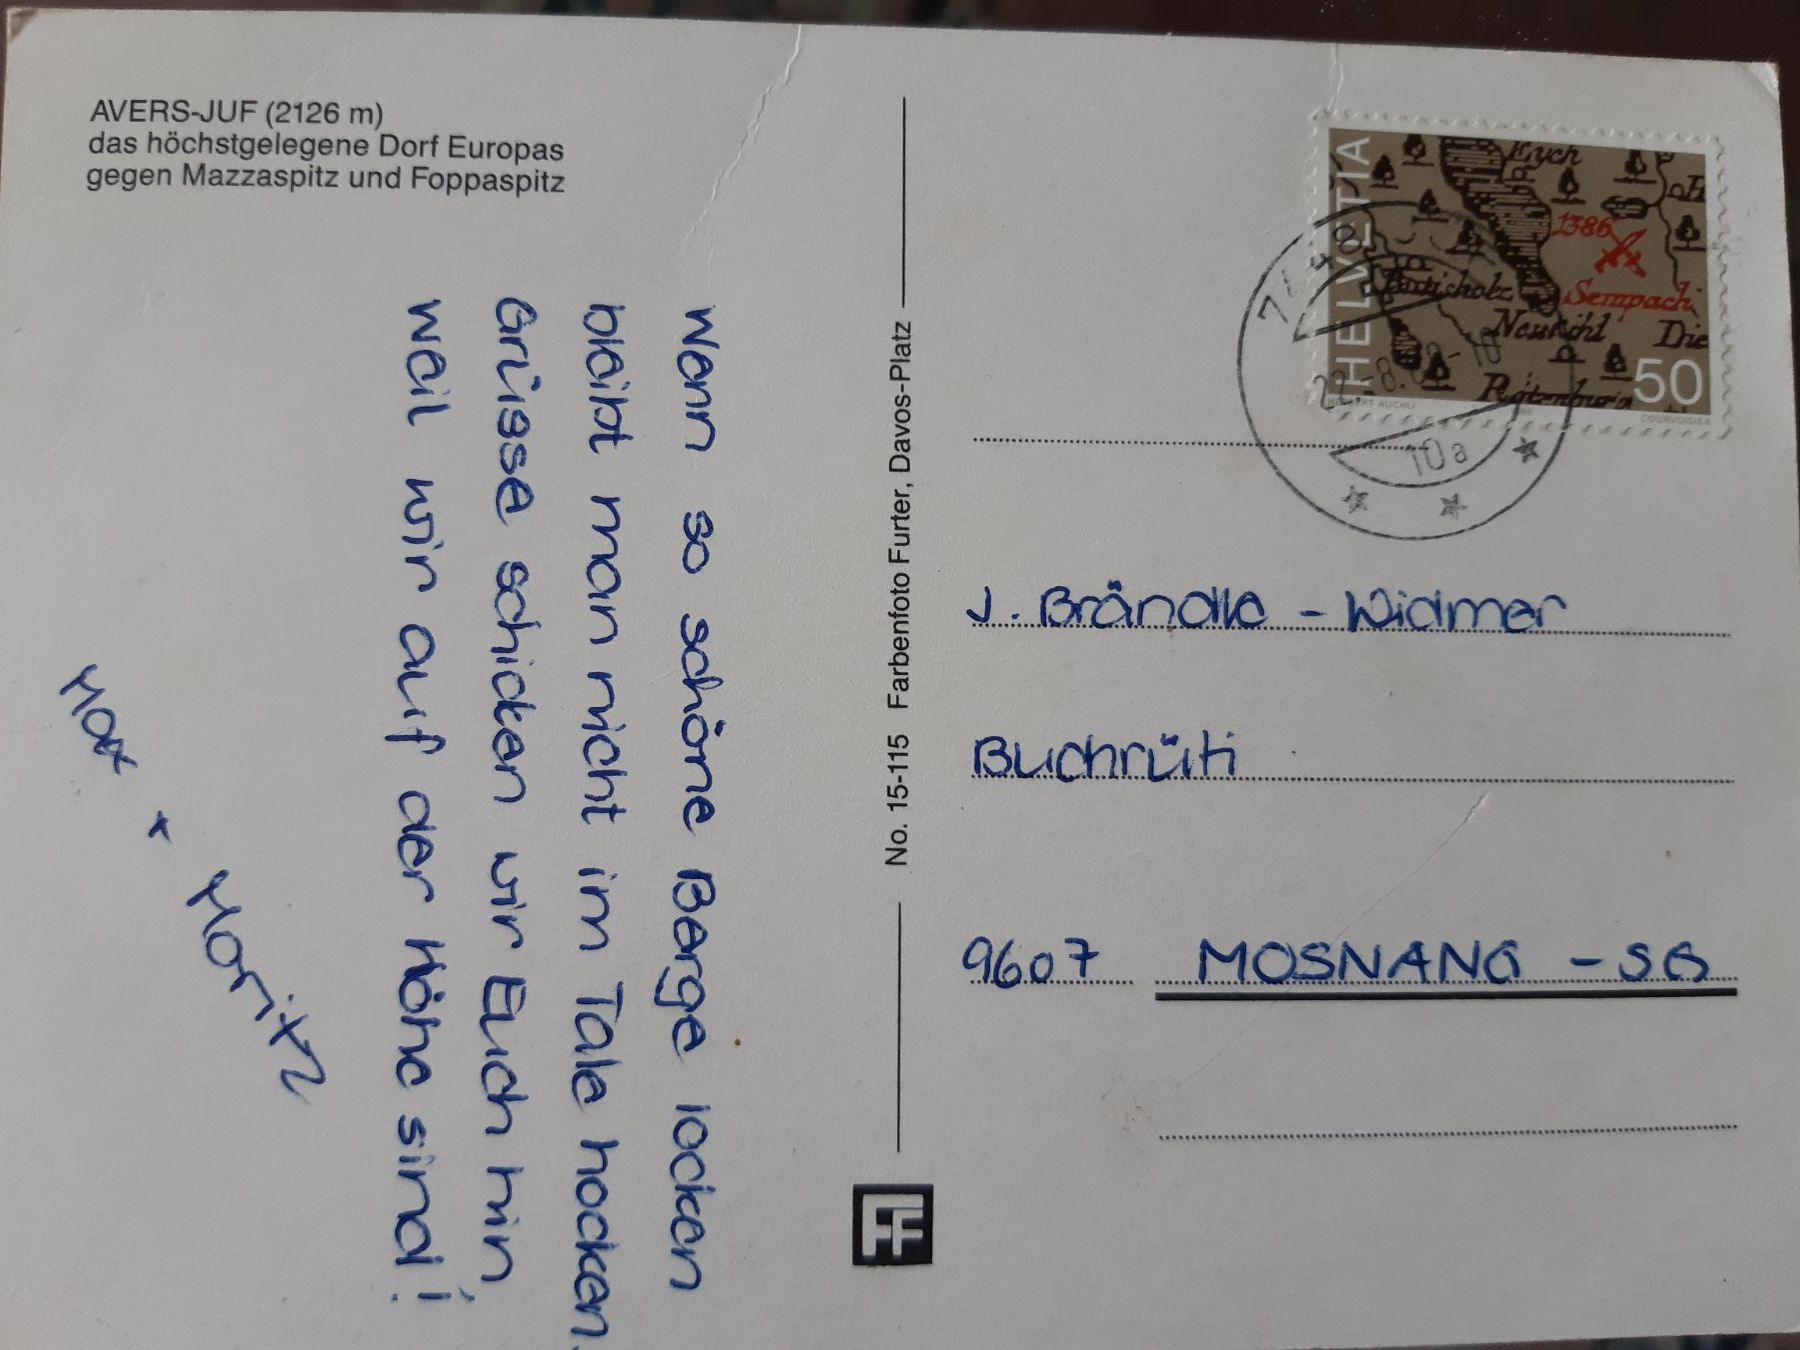 AVERS-JUF (2126 m)
das höchstgelegene Dorf Europas
gegen Mazzaspitz und Foppaspitz
Wenn so schöne Berge locken
bleibt man nicht im Tale hocken.
Grüsse schicken wir Euch hin,
weil wir auf der Höhe sind!
Max + Moritz
No. 15-115 Farbenfoto Furter, Davos-Platz
FF
HELVETIA
Eych
1386
Sempach
Die
50
COURVOISIER
10a
J. Brändle - Widmer
Buchrüti
9607 MOSNANG - SG